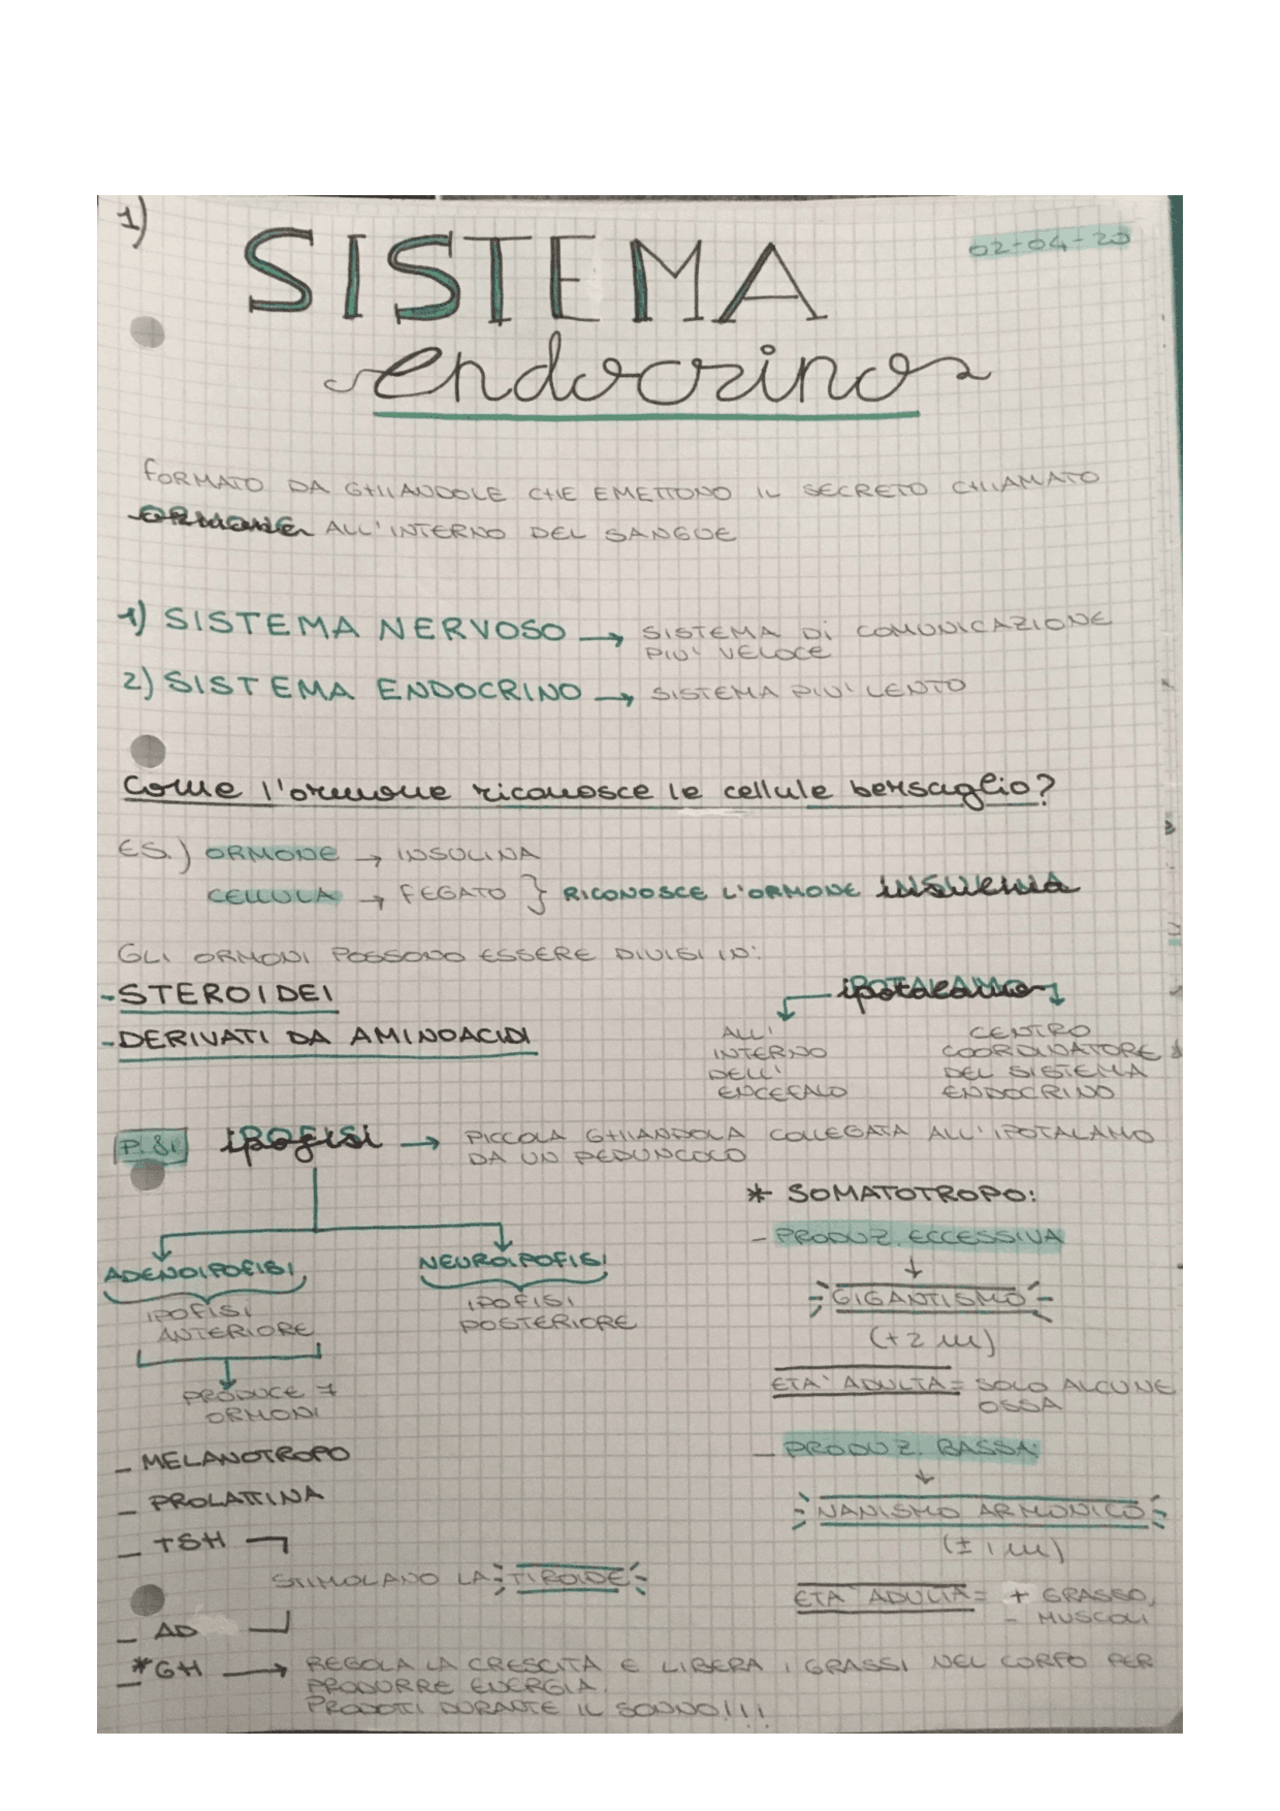 1)
02-04-20
SISTEMA
endocrino
FORMATO DA GHIANDOLE CHE EMETTONO IL SECRETO CHIAMATO
ORMONE ALL'INTERNO DEL SANGUE
1) SISTEMA NERVOSO → SISTEMA Di COMUNICAZIONE
PIU' VELOCE
2) SISTEMA ENDOCRINO → SISTEMA PIU' LENTO
Come l'ormone riconosce le cellule bersaglio?
ES.) ORMONE → INSULINA
CELLULA → FEGATO } RICONOSCE L'ORMONE INSULINA
GLI ORMONI POSSONO ESSERE DIVISI IN:
- STEROIDEI
- DERIVATI DA AMINOACIDI
IPOTALAMO
ALL'
INTERNO
DELL'
ENCEFALO
CENTRO
COORDINATORE
DEL SISTEMA
ENDOCRINO
P. 81 IPOFISI → PICCOLA GHIANDOLA COLLEGATA ALL'IPOTALAMO
DA UN PEDUNCOLO
ADENOIPOFISI
IPOFISI
ANTERIORE
PRODUCE 7
ORMONI
NEUROIPOFISI
IPOFISI
POSTERIORE
- MELANOTROPO
- PROLATTINA
- TSH
STIMOLANO LA TIROIDE
- AD
- *GH → REGOLA LA CRESCITA E LIBERA I GRASSI NEL CORPO PER
PRODURRE ENERGIA.
PRODOTTI DURANTE IL SONNO!!!
* SOMATOTROPO:
- PRODUZ. ECCESSIVA
↓
GIGANTISMO
(+2 m)
ETA' ADULTA = SOLO ALCUNE
OSSA
- PRODUZ. BASSA:
↓
NANISMO ARMONICO
(± 1 m)
ETA' ADULTA = + GRASSO,
- MUSCOLI